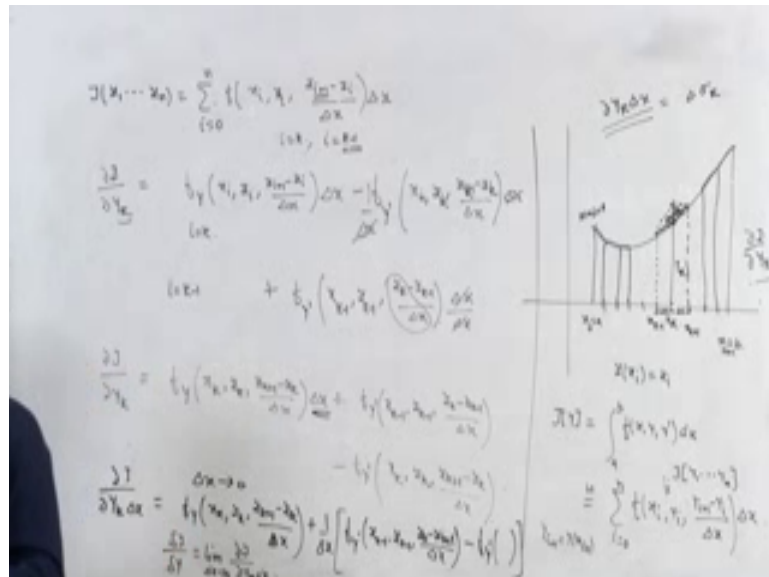 J(y₁ ⋯ yₙ) = Σᵢ₌₀ⁿ f(xᵢ, yᵢ, (yᵢ₊₁ − yᵢ)/Δx) Δx
i=k, i=k-1
∂J/∂yₖ = f_y(xᵢ, yᵢ, (yᵢ₊₁ − yᵢ)/Δx) Δx − 1/Δx f_y'(xₖ, yₖ, (yₖ₊₁ − yₖ)/Δx) Δx
i=k
i=k-1 + f_y'(xₖ₋₁, yₖ₋₁, (yₖ − yₖ₋₁)/Δx) Δx/Δx
∂J/∂yₖ = f_y(xₖ, yₖ, (yₖ₊₁ − yₖ)/Δx) Δx + f_y'(xₖ₋₁, yₖ₋₁, (yₖ − yₖ₋₁)/Δx)
− f_y'(xₖ, yₖ, (yₖ₊₁ − yₖ)/Δx)
Δx → 0
∂J/∂yₖΔx = f_y(xₖ, yₖ, (yₖ₊₁ − yₖ)/Δx) + 1/Δx [f_y'(xₖ₋₁, yₖ₋₁, (yₖ − yₖ₋₁)/Δx) − f_y'( )]
δJ/δy = lim
∂yₖΔx = Δσₖ
∂J/∂yₖ
yₖ
xₖ₋₁ xₖ xₖ₊₁
y(xᵢ) = yᵢ
J(y) = ∫ₐᵇ f(x, y, y') dx
J(y₁ ⋯ yₙ)
= Σᵢ₌₀ⁿ f(xᵢ, yᵢ, (yᵢ₊₁ − yᵢ)/Δx) Δx